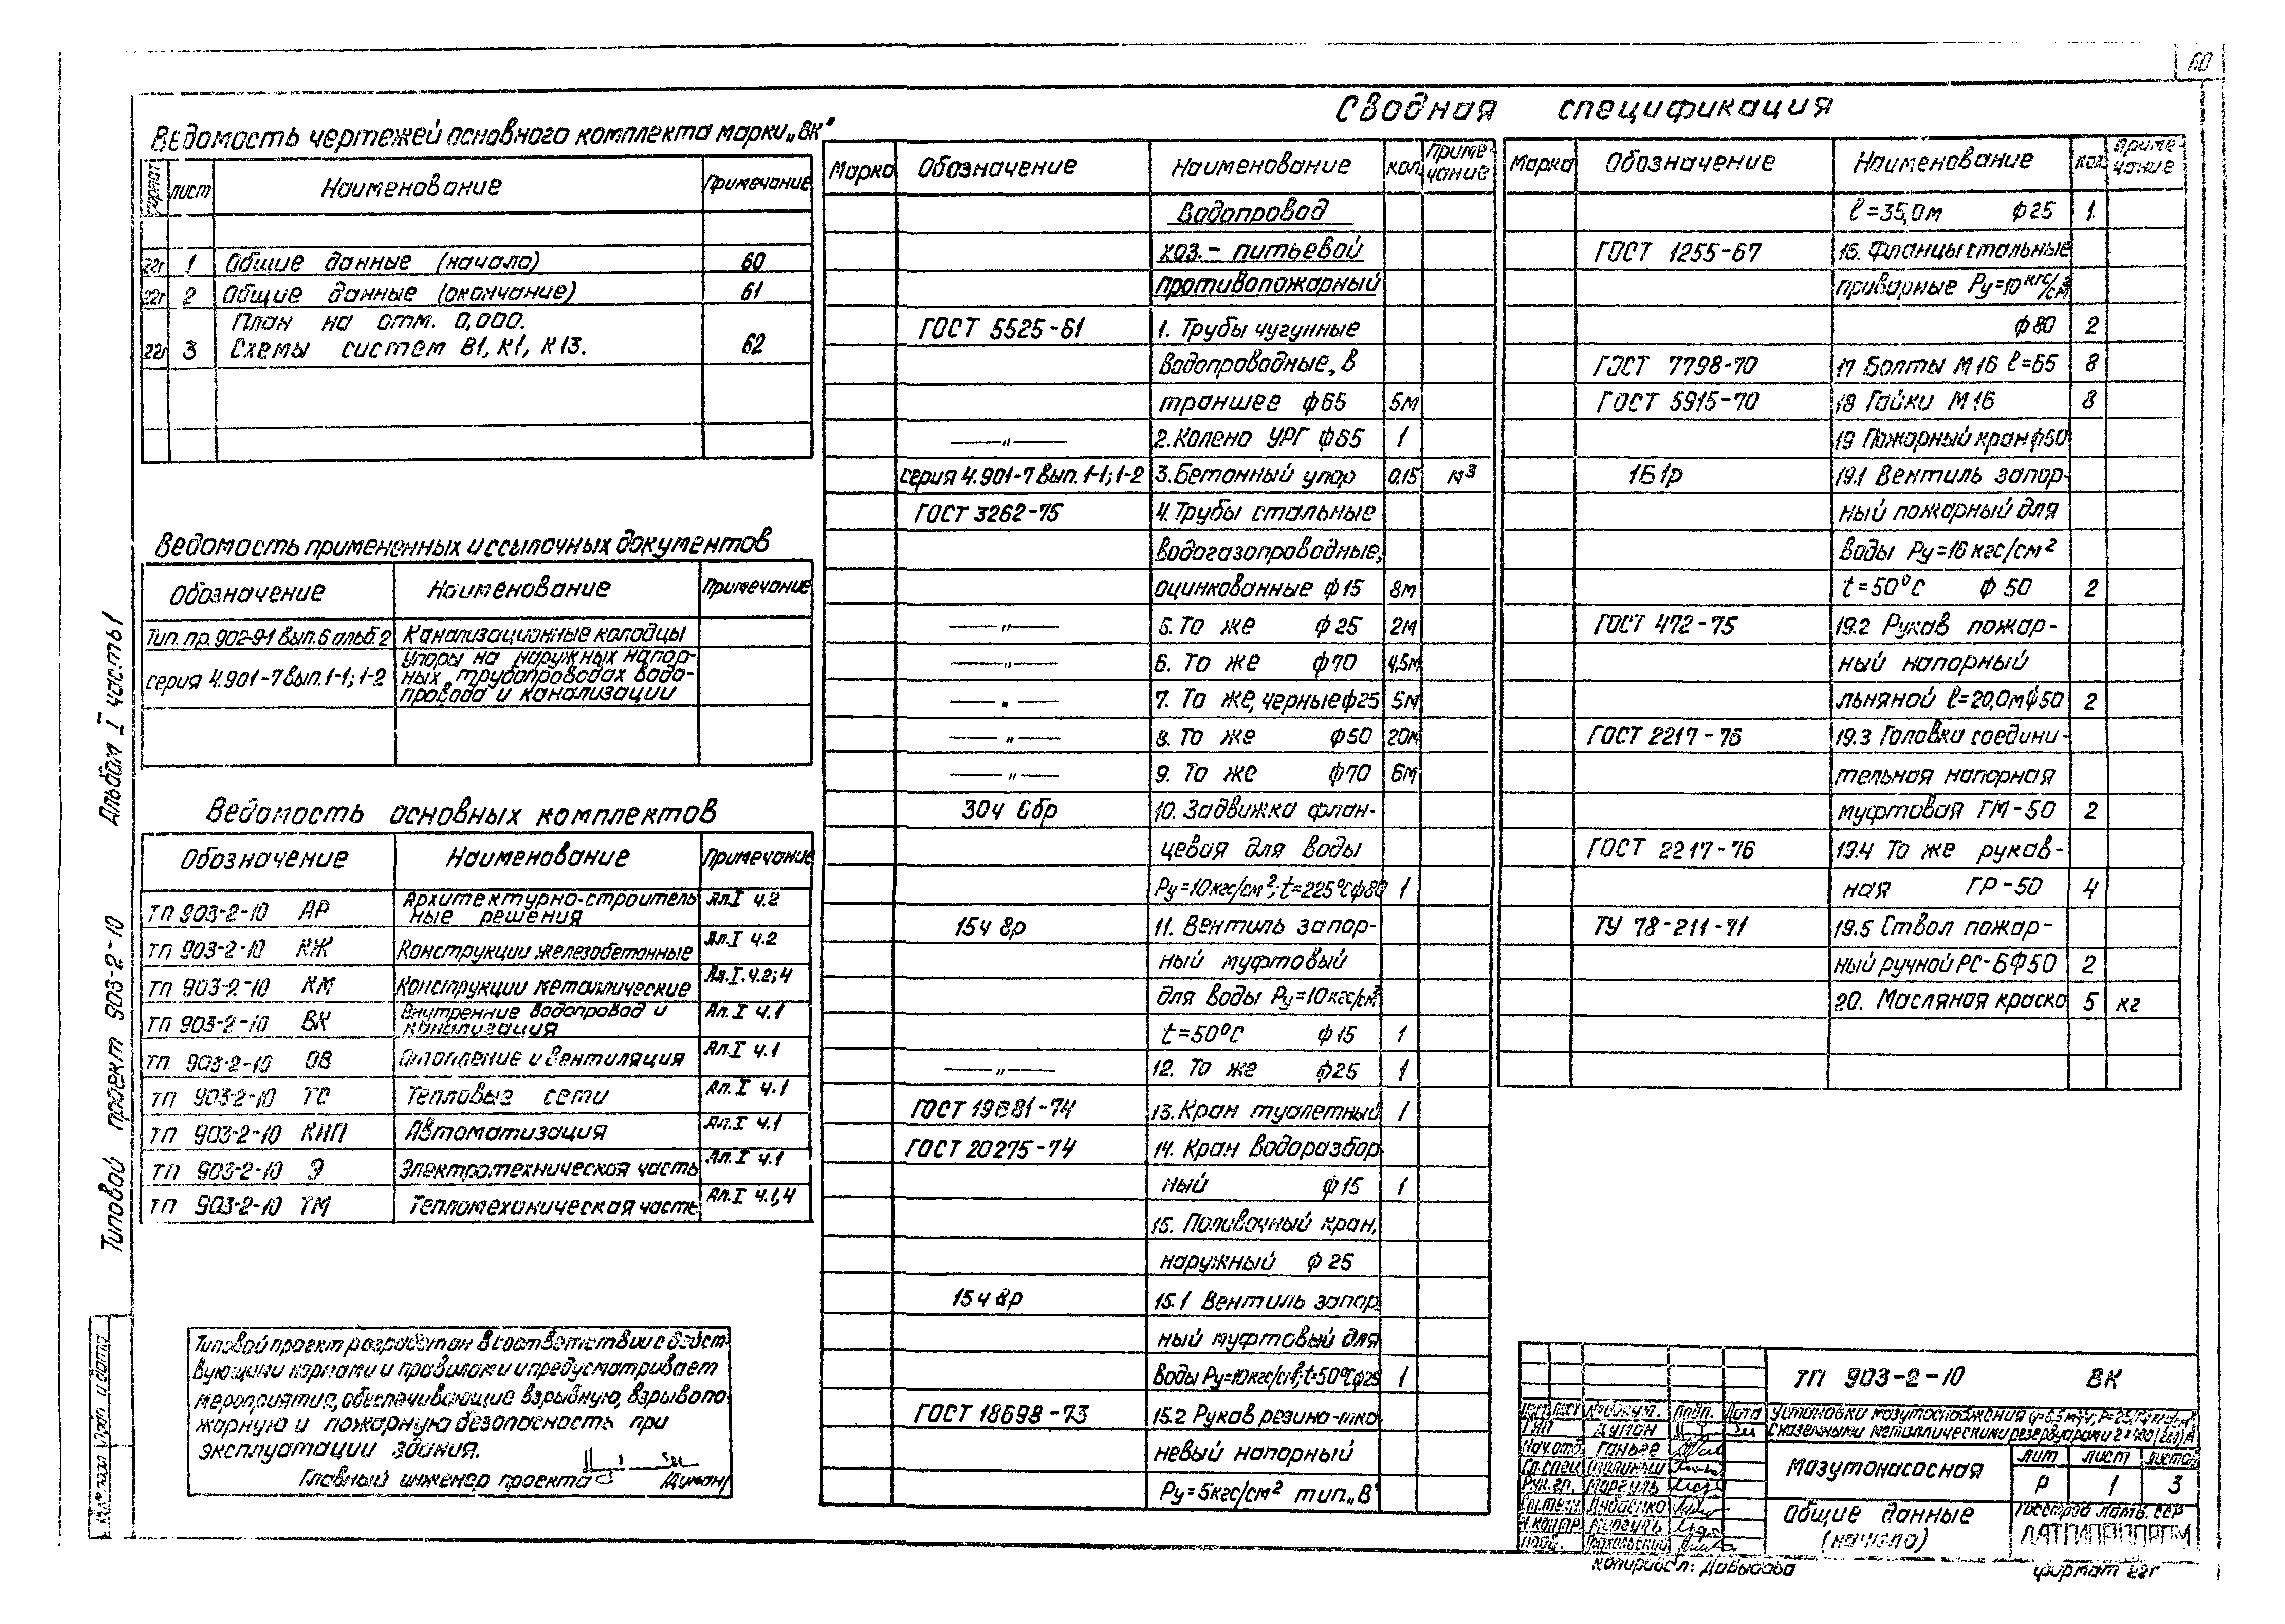 60
Ведомость чертежей основного комплекта марки „ВК"
формат лист Наименование Примечание
22г 1 Общие данные (начало) 60
22г 2 Общие данные (окончание) 61
План на отм. 0,000.
22г 3 Схемы систем В1, К1, К13. 62
Ведомость примененных и ссылочных документов
Обозначение Наименование Примечание
Тип. пр. 902-9-1 вып. 6 альб. 2 Канализационные колодцы
серия 4.901-7 вып. 1-1; 1-2 Упоры на наружных напор-
ных трубопроводах водо-
провода и канализации
Ведомость основных комплектов
Обозначение Наименование Примечание
ТП 903-2-10 АР Архитектурно-строитель
ные решения Ал.I ч.2
ТП 903-2-10 КЖ Конструкции железобетонные Ал.I ч.2
ТП 903-2-10 КМ Конструкции металлические Ал.I.ч.2;4
ТП 903-2-10 ВК Внутренние водопровод и
канализация Ал.I ч.1
ТП 903-2-10 ОВ Отопление и вентиляция Ал.I ч.1
ТП 903-2-10 ТС Тепловые сети Ал.I ч.1
ТП 903-2-10 КИП Автоматизация Ал.I ч.1
ТП 903-2-10 Э Электротехническая часть Ал.I ч.1
ТП 903-2-10 ТМ Тепломеханическая часть Ал.I ч.1,4
Типовой проект разработан в соответствии с дейст-
вующими нормами и правилами и предусматривает
мероприятия, обеспечивающие взрывную, взрывопо-
жарную и пожарную безопасность при
эксплуатации здания.
Главный инженер проекта
Типовой проект 903-2-10 Альбом I часть 1
Сводная спецификация
Марка Обозначение Наименование кол. Приме-
чание
Водопровод
хоз.- питьевой
противопожарный
ГОСТ 5525-61 1. Трубы чугунные
водопроводные, в
траншее ф65 5м
—"— 2. Колено УРГ ф65 1
серия 4.901-7 вып. 1-1; 1-2 3. Бетонный упор 0,15 м³
ГОСТ 3262-75 4. Трубы стальные
водогазопроводные,
оцинкованные ф15 8м
—"— 5. То же ф25 2м
—"— 6. То же ф70 4,5м
—"— 7. То же, черные ф25 5м
—"— 8. То же ф50 20м
—"— 9. То же ф70 6м
30ч 6бр 10. Задвижка флан-
цевая для воды
Ру=10кгс/см²; t=225°С ф80 1
15ч 8р 11. Вентиль запор-
ный муфтовый
для воды Ру=10кгс/см²
t=50°С ф15 1
—"— 12. То же ф25 1
ГОСТ 19681-74 13. Кран туалетный 1
ГОСТ 20275-74 14. Кран водоразбор-
ный ф15 1
15. Поливочный кран,
наружный ф25
15ч 8р 15.1 Вентиль запор
ный муфтовый для
воды Ру=10кгс/см²; t=50°С ф25 1
ГОСТ 18698-73 15.2 Рукав резино-тка
невый напорный
Ру=5кгс/см² тип „В"
Марка Обозначение Наименование кол. Приме-
чание
ℓ=35,0м ф25 1
ГОСТ 1255-67 16. Фланцы стальные
приварные Ру=10кгс/см²
ф80 2
ГОСТ 7798-70 17 Болты М16 ℓ=65 8
ГОСТ 5915-70 18 Гайки М16 8
19 Пожарный кран ф50
1Б1р 19.1 Вентиль запор-
ный пожарный для
воды Ру=16кгс/см²
t=50°С ф50 2
ГОСТ 472-75 19.2 Рукав пожар-
ный напорный
льняной ℓ=20,0м ф50 2
ГОСТ 2217-76 19.3 Головка соедини-
тельная напорная
муфтовая ГМ-50 2
ГОСТ 2217-76 19.4 То же рукав-
ная ГР-50 4
ТУ 78-211-71 19.5 Ствол пожар-
ный ручной РС-Б ф50 2
20. Масляная краска 5 кг
ТП 903-2-10 ВК
Подп. Дата
Установка мазутоснабжения
с наземными металлическими резервуарами
Мазутонасосная
лит лист листов
Р 1 3
Общие данные
(начало)
Госстрой Латв. ССР
ЛАТГИПРОПРОМ
Копировал: Давыдова
формат 22г